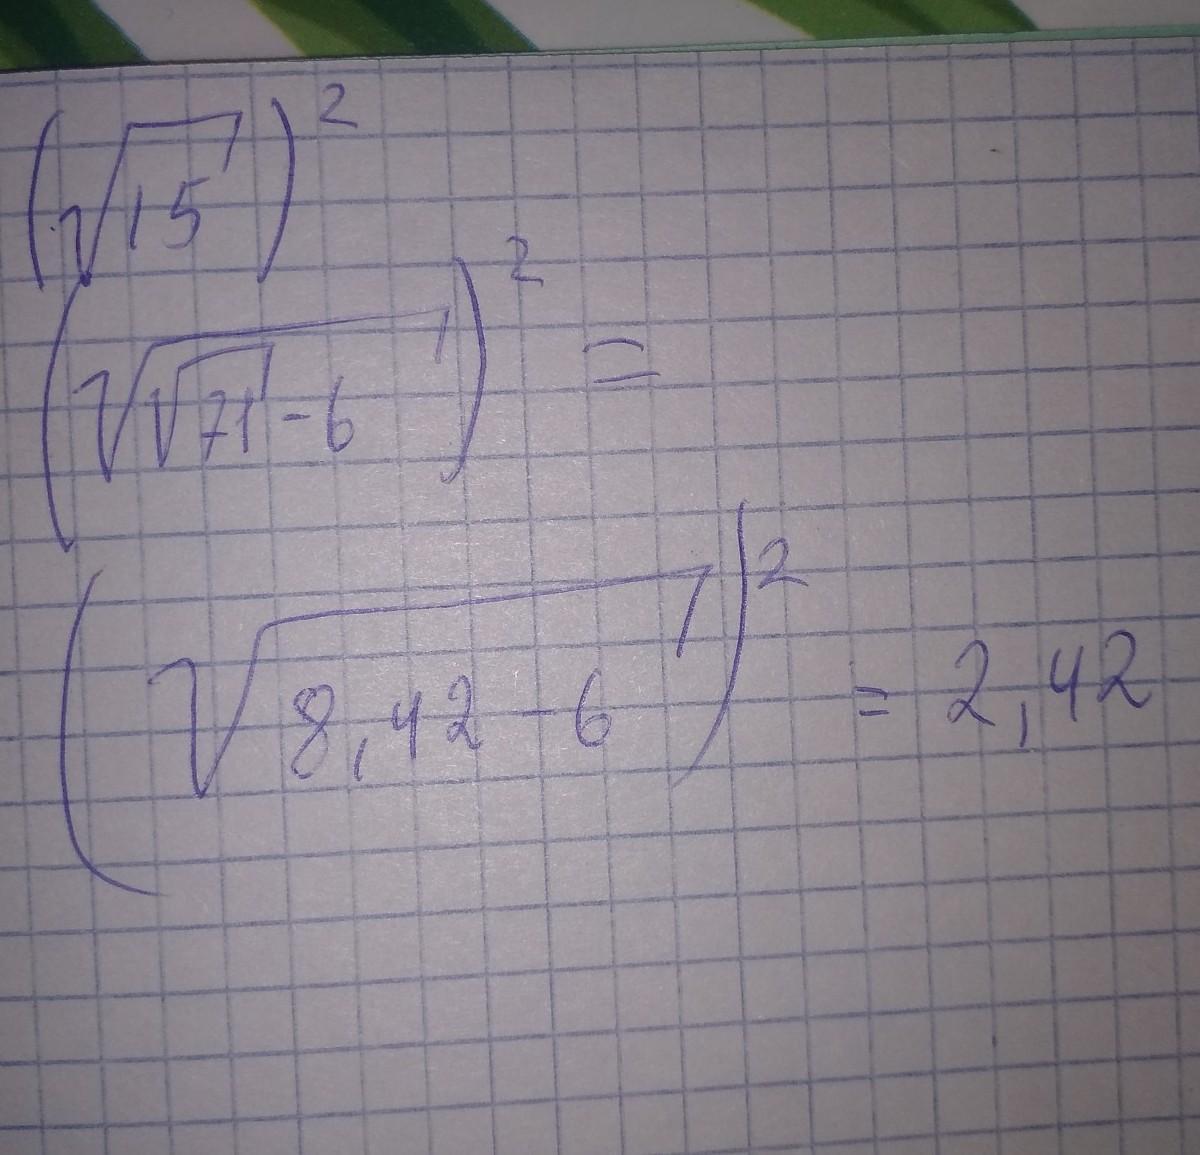 (√15)²
(√(√71 - 6))² =
(√(8,42 - 6))² = 2,42